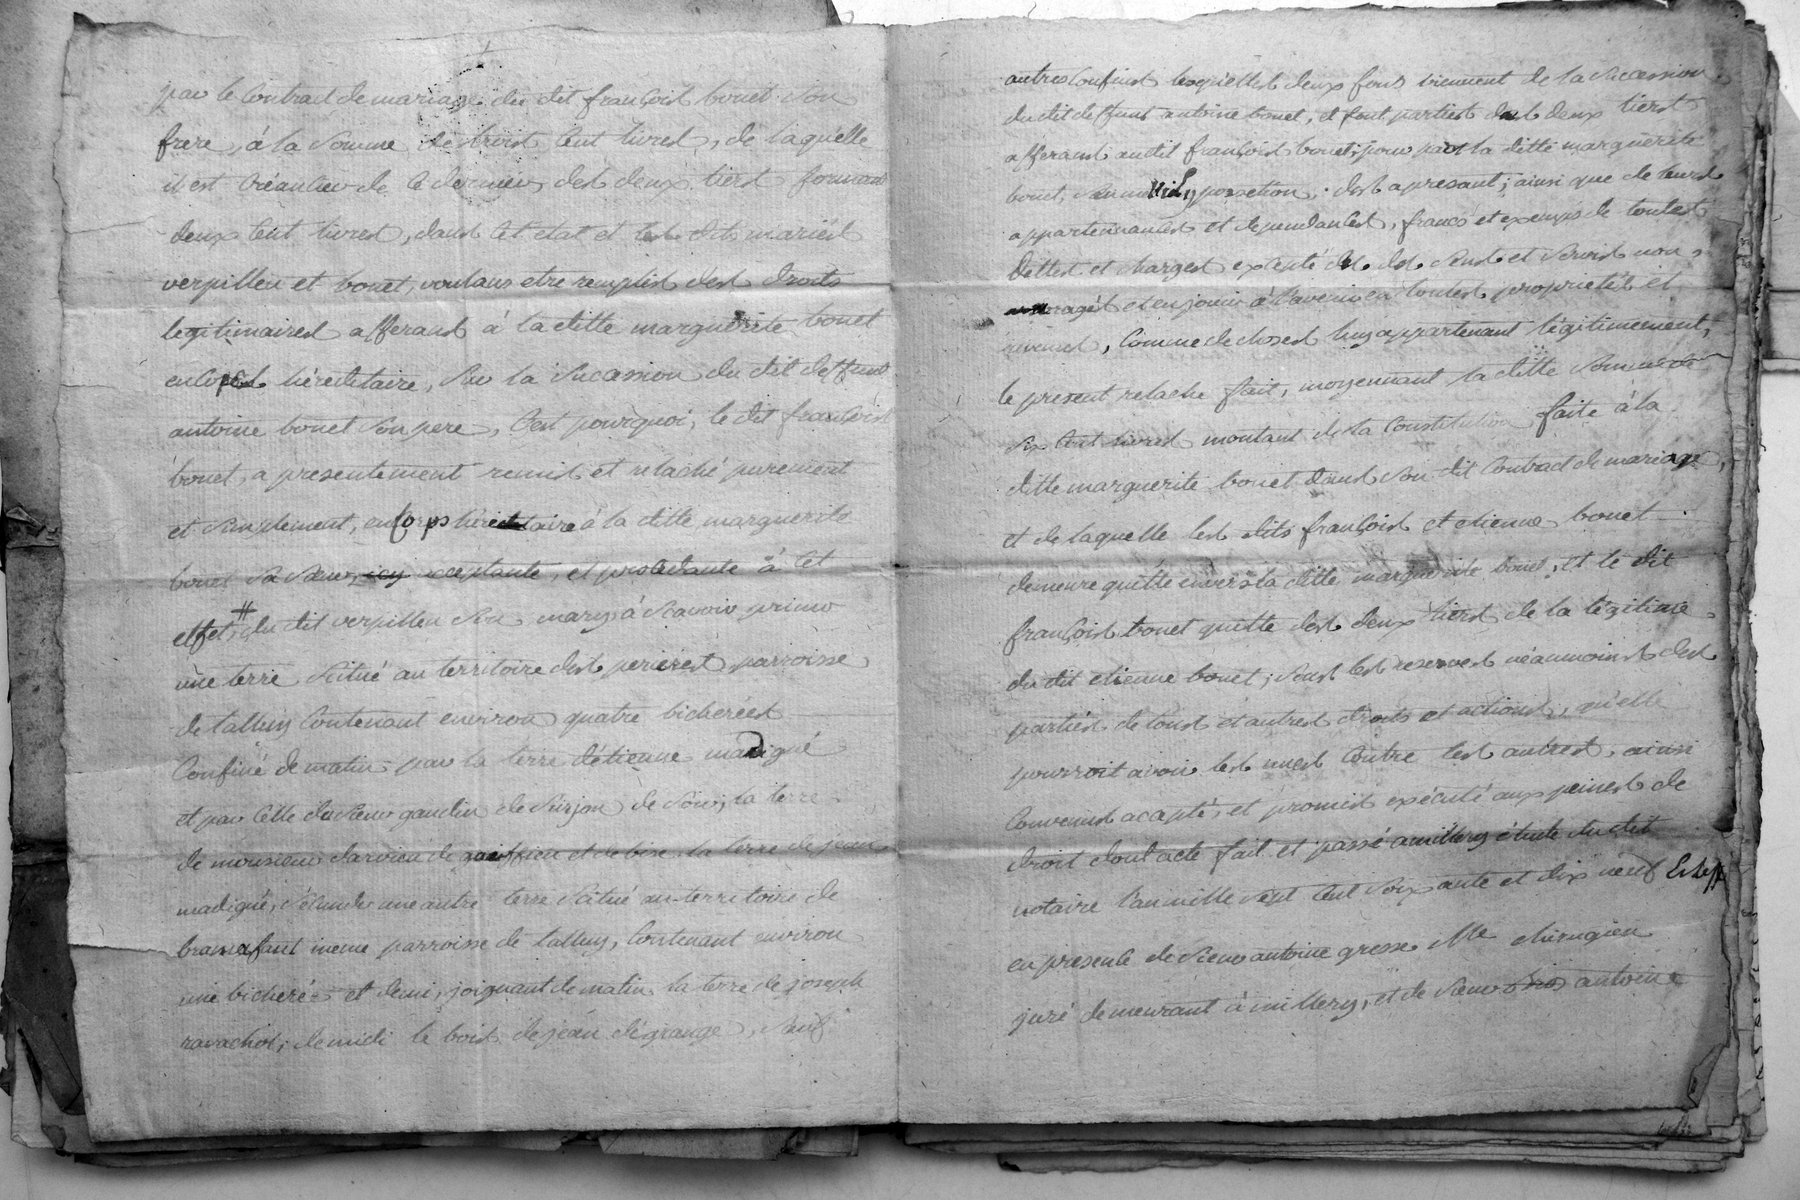 par le Contract de mariage du dit françoist bouet son
frere, à la somme de troist Cent livrest, de laquelle
il est Créancier de Ce dernier dest deux tierst formant
deux Cent livrest, dans Cet état et lest dits mariést
verpilleu et bouet, voulans etre remplist dest droits
legitimairest afferant à la ditte marguerite bouet
en Corpst héréditaire, sur la succession du dit deffunt
antoine bouet son pere, C'est pourquoi, le dit françoist
bouet, a presentement remist et relaché purement
et simplement, en Corps héréditaire à la ditte marguerite
bouet sa sœur, icy acceptante, et procédante à Cet
effet # du dit verpilleu son mary, à scavoir primo
une terre situé au territoire dest perierest parroisse
de talluy Contenant environ quatre bicheréest
Confiné de matin par la terre d'étienne madigué
et par Celle du sieur gaudin de surjon de soir, la terre
de monsieur darvieu de goiffieu et de bise la terre de jean
madigué, secundo une autre terre situé au territoire de
bramafant meme parroisse de talluy, Contenant environ
une bicheréé et demi, joignant de matin la terre de joseph
ravachot, de midi le boist de jean dégrange, sauf
autres Confinst lesquellest deux fonds viennent de la succession
du dit deffunt antoine bouet, et font partiest dest deux tierst
afferant au dit françoist bouet, pour par la ditte marguerite
bouet, possetion dest apresant, ainsi que de leurst
appartenancest et dependancest, francs et exempts de toutest
dettest et chargest excepté dest senst et servist non
aragést et en jouir à l'avenir en toutest proprietést et
revenust, Comme de chosest luy appartenant légitimement,
le present relache fait, moyennant la ditte somme de
six Cent livrest montant de la Constitution faite à la
ditte marguerite bouet dans son dit Contract de mariage,
et de laquelle lest dits françoist et etienne bouet
demeure quitte envers la ditte marguerite bouet, et le dit
françoist bouet quitte dest deux tierst de la légitime
du dit etienne bouet, soust lest reservest néanmoinst dest
partiest de toust et autrest droits et actionst, qu'elle
pourroit avoir lest unest Contre lest autrest, ainsi
Convenust acapté, et promist exécuté aux peinest de
droit dont acte fait et passé a millery étude du dit
notaire l'an mille sept Cent soixante et dix neuf
en presence de sieur antoine grosse Me chirugien
juré demeurant à millery, et de sieur antoine